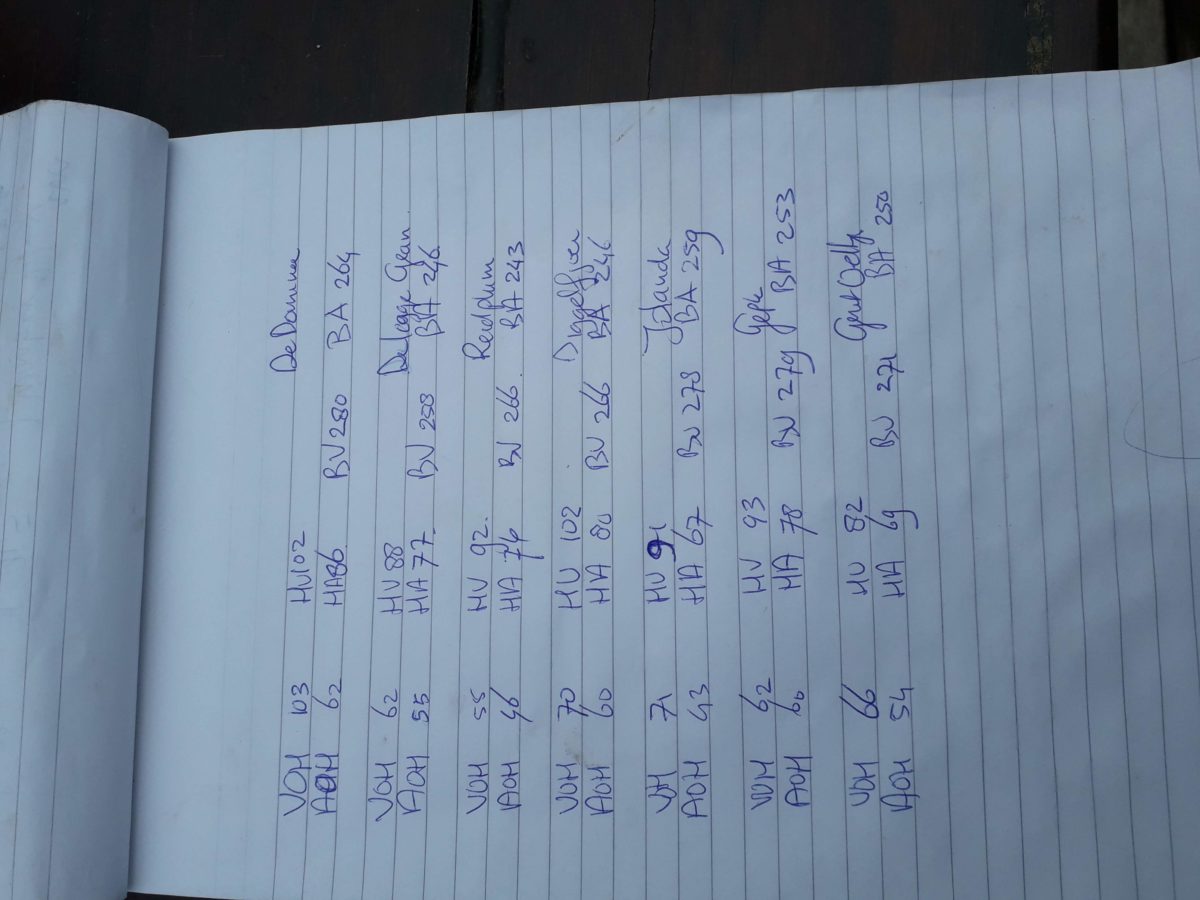 VOH 103 HV102 De Damme
AOH 62 HA86 BV 280 BA 264
VOH 62 HV 88
AOH 55 HA 77 BV 258 BA 246
VOH 55 HV 92.
AOH 46 HA BV 266. BA 243
VOH 70 HV 102
AOH 60 HA 80 BV 266 BA 246
VOH 71 HV 91 Jolanda
AOH 43 HA 67 BV 278 BA 259
VOH 62 HV 93
AOH 60 HA 78 BV 279 BA 253
VOH 66 HV 82
AOH 54 HA 69 BV 271 BA 250